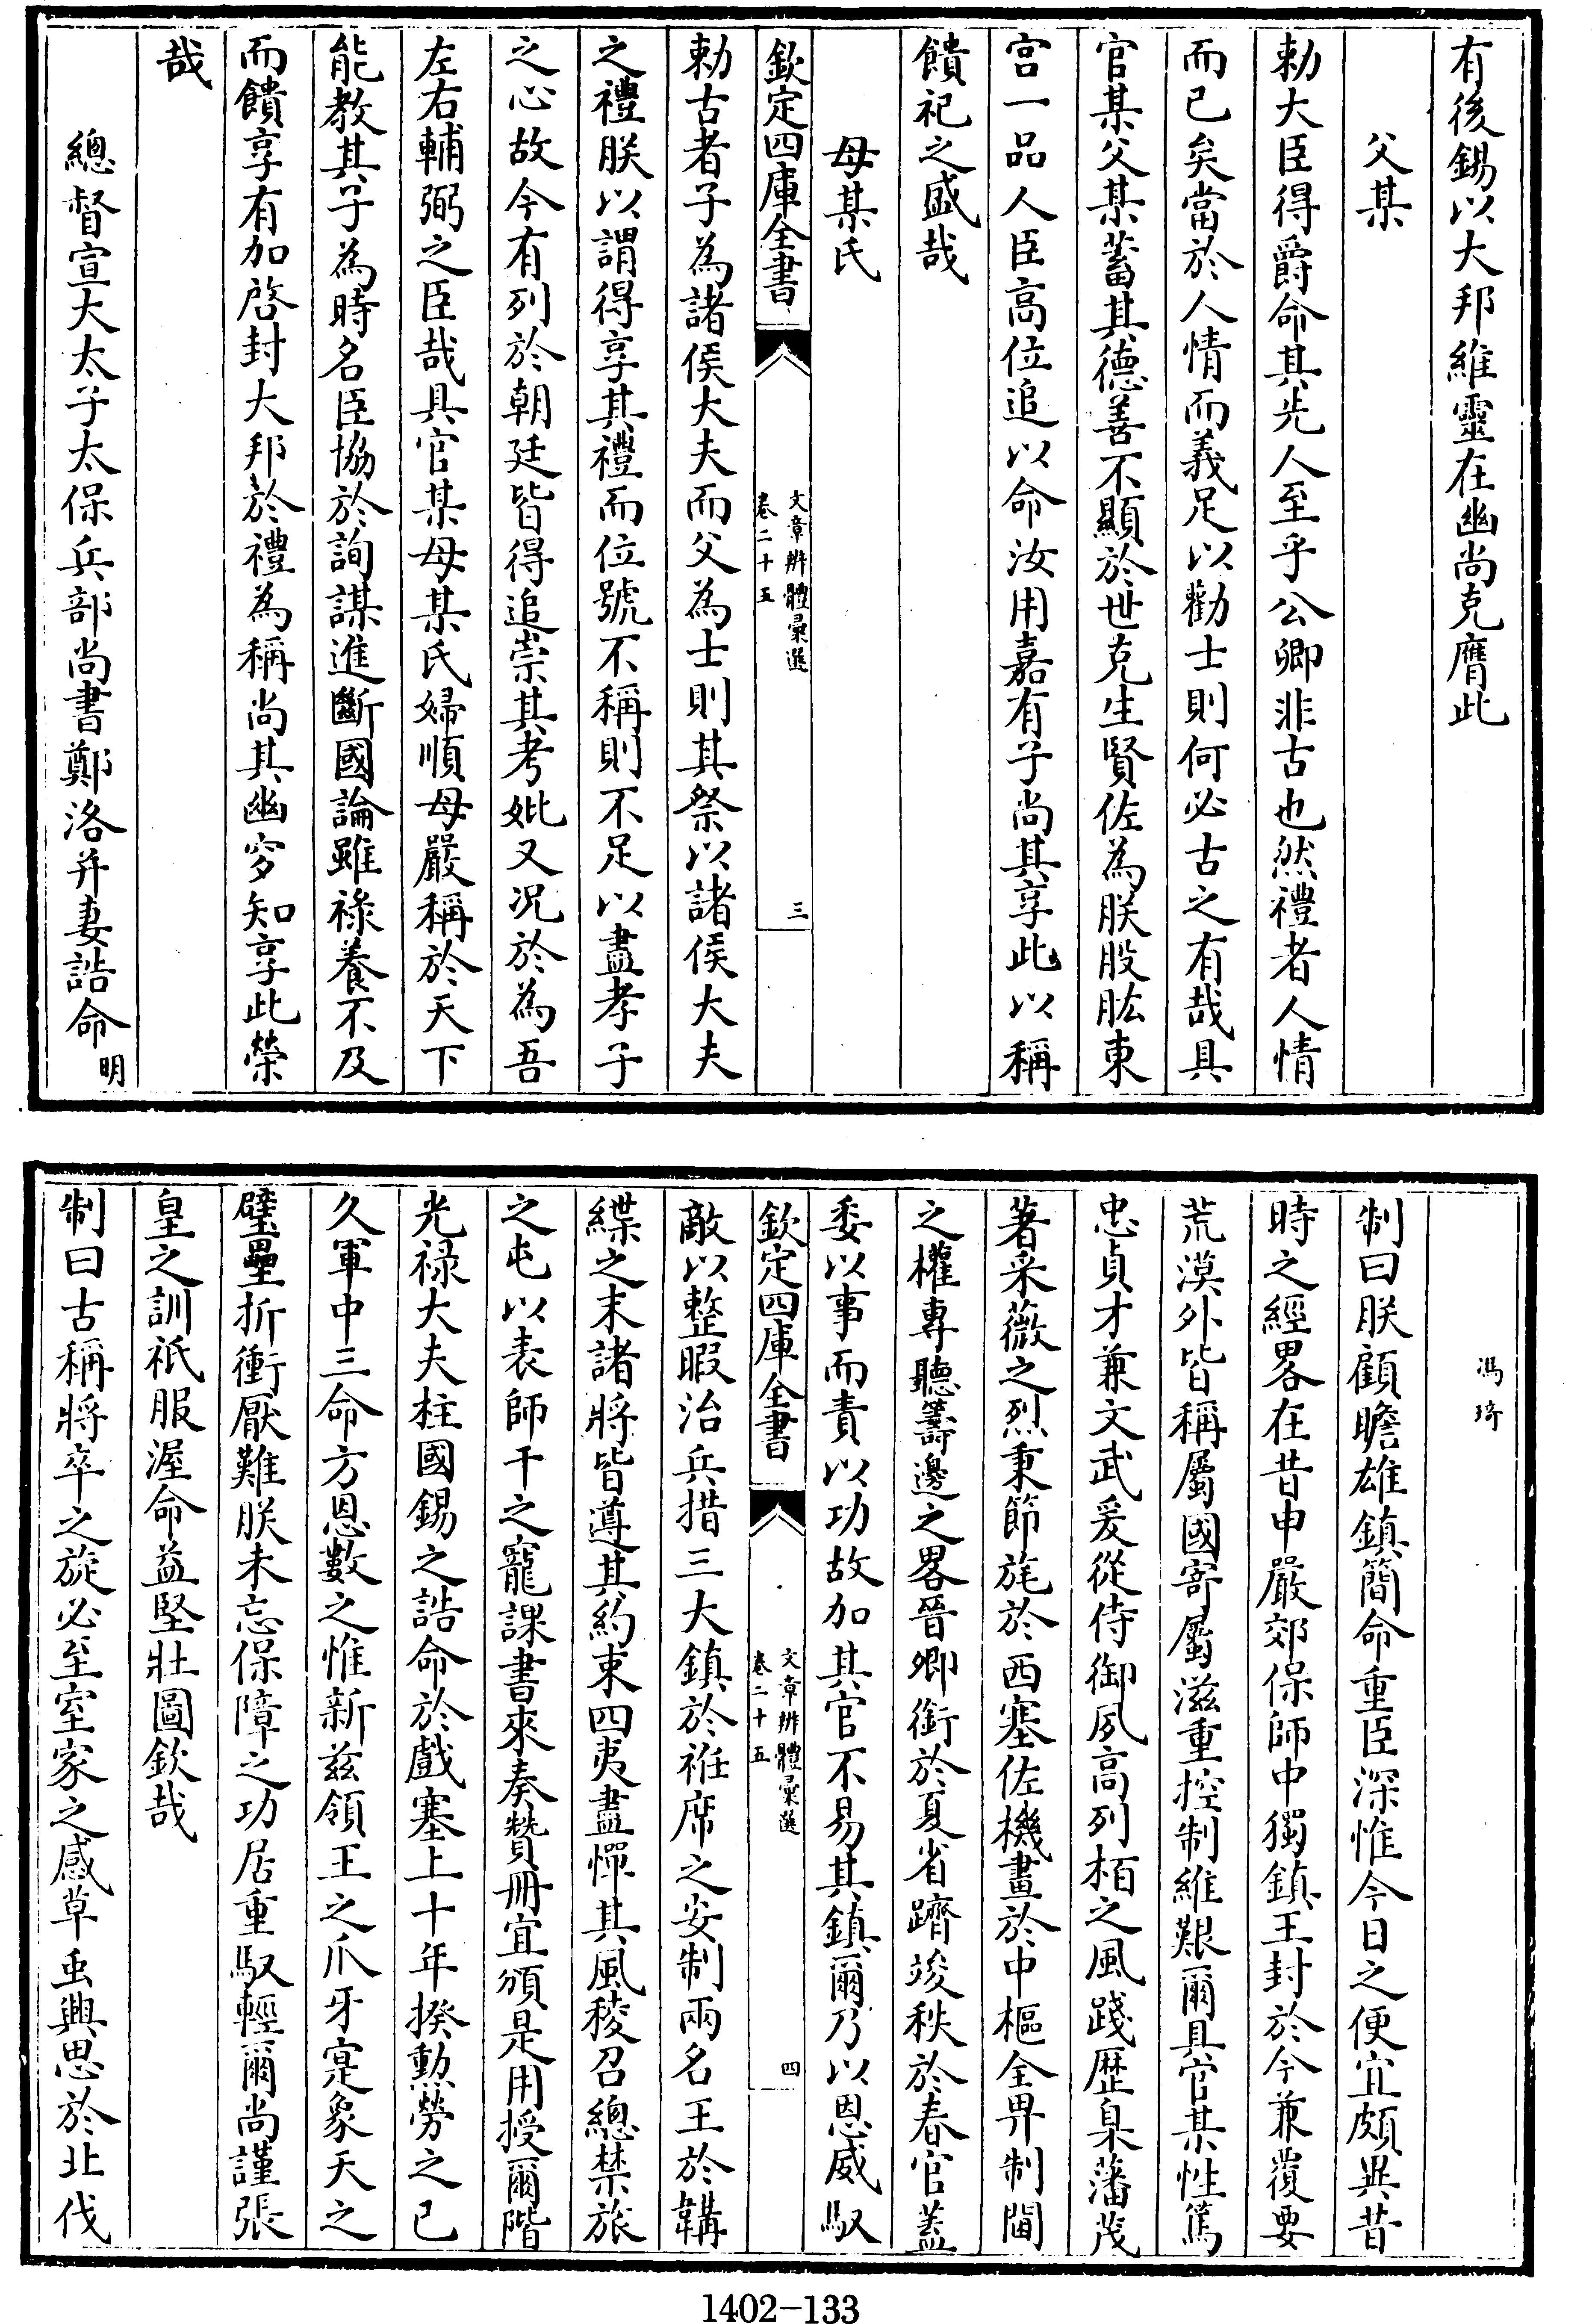 有後錫以大邦維靈在幽尚克膺此
父某
勅大臣得爵命其先人至乎公卿非古也然禮者人情
而已矣當於人情而義足以勸士則何必古之有哉具
官某父某蓄其德善不顯於世克生賢佐為朕股肱東
宫一品人臣高位追以命汝用嘉有子尚其享此以稱
饋祀之盛哉
母某氏
欽定四庫全書
文章辨體彙選
卷二十五
三
勅古者子為諸侯大夫而父為士則其祭以諸侯大夫
之禮朕以謂得享其禮而位號不稱則不足以盡孝子
之心故今有列於朝廷皆得追崇其考妣又况於為吾
左右輔弼之臣哉具官某母某氏婦順母嚴稱於天下
能教其子為時名臣協於詢謀進斷國論雖祿養不及
而饋享有加啓封大邦於禮為稱尚其幽穸知享此榮
哉
總督宣大太子太保兵部尚書鄭洛并妻誥命明
馮琦
制曰朕顧瞻雄鎮簡命重臣深惟今日之便宜頗異昔
時之經畧在昔申嚴郊保師中獨鎮王封於今兼覆要
荒漠外皆稱屬國寄屬滋重控制維艱爾具官某性篤
忠貞才兼文武爰從侍御夙高列栢之風踐歴臬藩茂
著采薇之烈秉節旄於西塞佐機畫於中樞全畀制閫
之權專聽籌邊之畧晉卿銜於夏省躋竣秩於春官蓋
委以事而責以功故加其官不易其鎮爾乃以恩威馭
欽定四庫全書
文章辨體彙選
卷二十五
四
敵以整暇治兵措三大鎮於袵席之安制兩名王於鞲
緤之末諸將皆遵其約束四夷盡憚其風稜召總禁旅
之屯以表師干之寵課書來奏贊冊宜頒是用授爾階
光禄大夫柱國錫之誥命於戲塞上十年揆勲勞之已
久軍中三命方恩數之惟新兹領王之爪牙寔象天之
壁壘折衝厭難朕未忘保障之功居重馭輕爾尚謹張
皇之訓祇服渥命益堅壯圖欽哉
制曰古稱將卒之旋必至室家之感草虫興思於北伐
1402-133